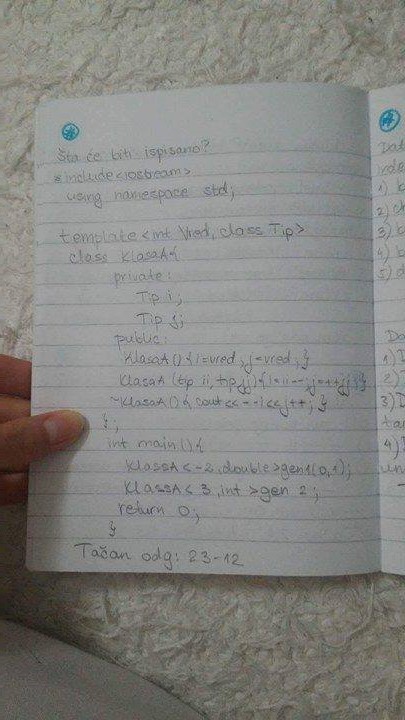 Šta će biti ispisano?
#include <iostream>
using namespace std;
template <int Vred, class Tip>
class KlasaA{
private:
Tip i;
Tip j;
public:
KlasaA(){i=vred, j=vred;}
KlasaA (tip ii, tip jj){i=ii--; j=++jj;}
~KlasaA(){cout<<--i<<j++;}
};
int main(){
KlasaA<-2,double>gen1(0,1);
KlasaA<3,int>gen 2;
return 0;
}
Tačan odg: 23-12
Dat
1) k
2) c
3) k
4) b
5) d
Da
1) D
2)
3) D
4)